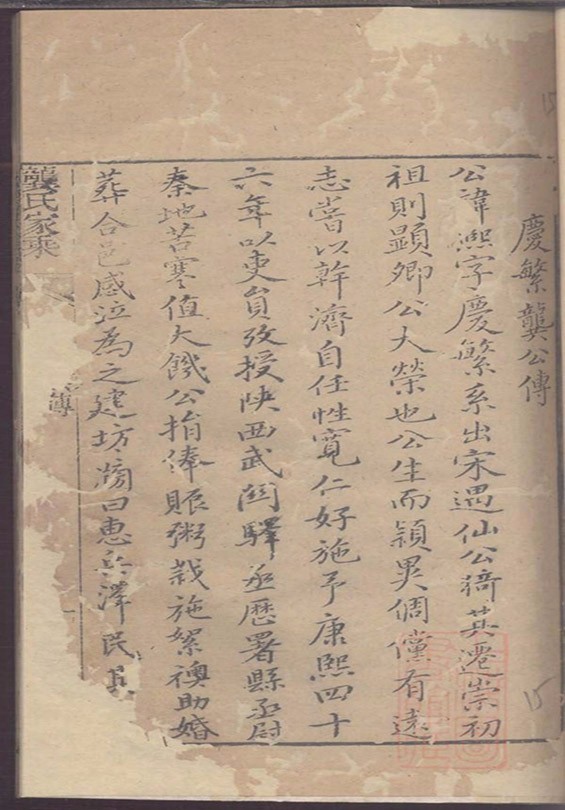 慶繁龔公傳
公諱澂字慶繁系出宋遇仙公猗其遷崇初
祖則顯卿公大榮也公生而穎異倜儻有遠
志嘗以幹濟自任性寬仁好施予康熙四十
六年以吏員攷授陜西武関驛丞歷署縣丞尉
秦地苦寒值大饑公捐俸賑粥裁施絮襖助婚
葬合邑感泣為之建坊牓曰惠民澤民其
龔氏家乘
傳
15